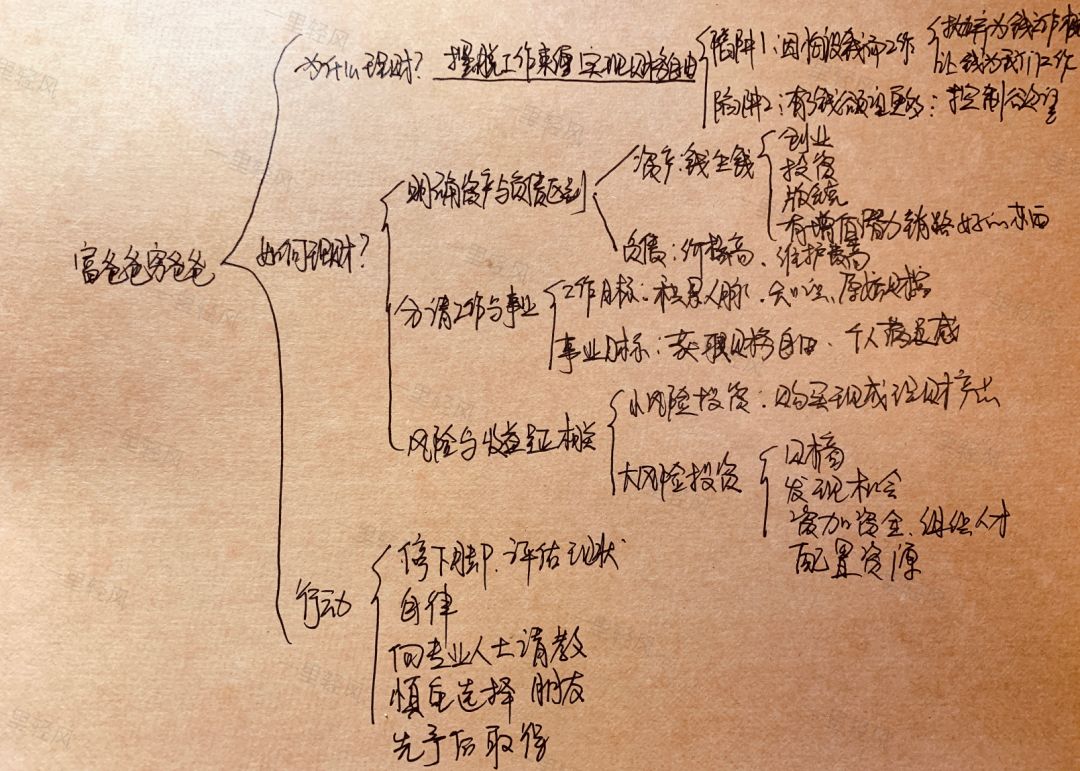 富爸爸穷爸爸
为什么理财？摆脱工作束缚 实现财务自由
陷阱1：因怕没钱而工作
放弃为钱工作
让钱为我们工作
陷阱2：有了钱欲望更多：控制欲望
如何理财？
明确资产与负债区别
资产：钱生钱
创业
投资
版税
有增值潜力销路好的东西
负债：价格高、维护费高
分清工作与事业
工作目标：积累人脉、知识、原始财授
事业目标：获取财务自由、个人满足感
风险与收益呈正相关
小风险投资：购买现成理财产品
大风险投资
发现机会
资金、组织人才
配置资源
行动
停下脚，评估现状
自律
向专业人士请教
慎重选择 朋友
先予后取得
一里轻风